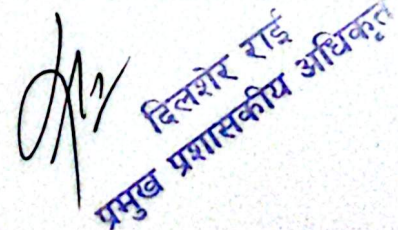 दिलशेर राई
प्रमुख प्रशासकीय अधिकृत